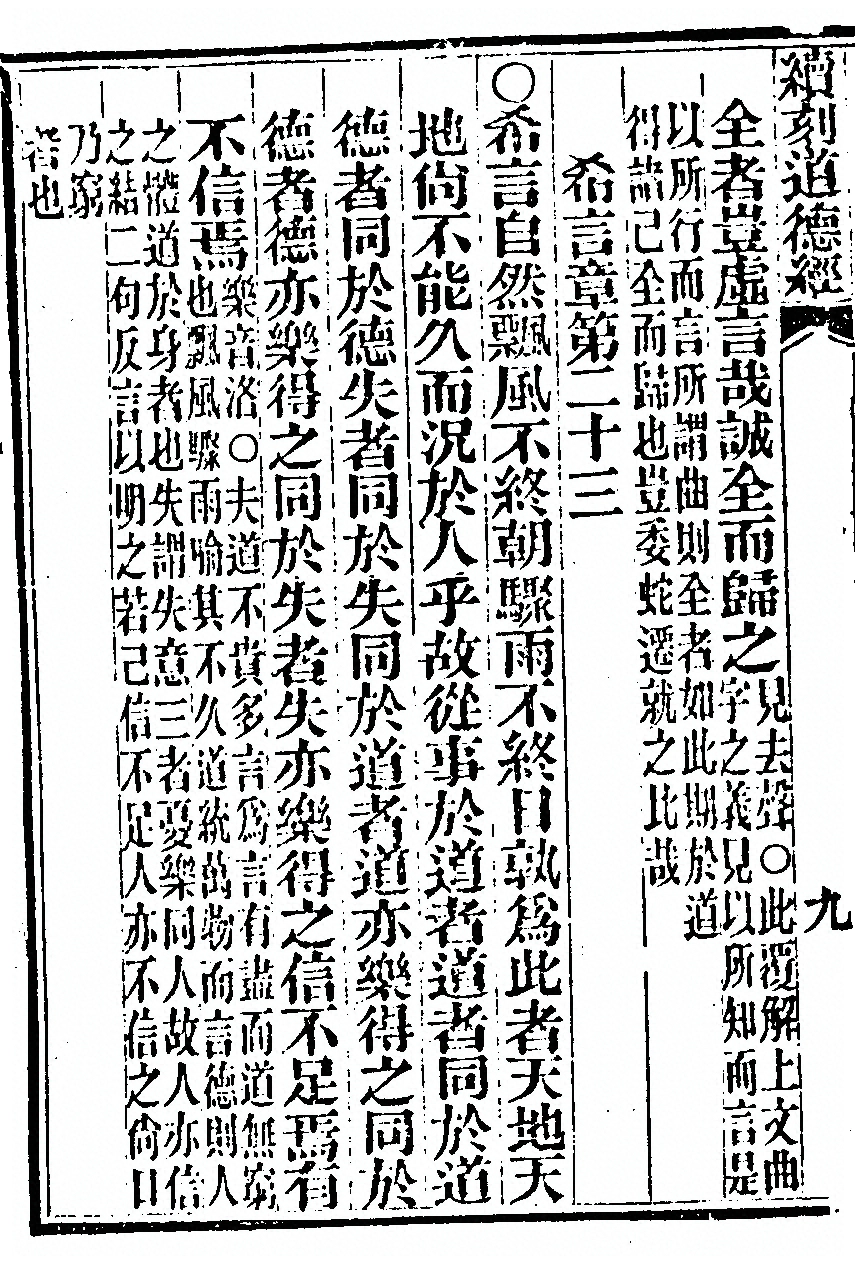 續刻道德經
九
全者豈虛言哉誠全而歸之
見去聲○此覆解上文曲
字之義見以所知而言是
以所行而言所謂曲則全者如此期於道
得諸己全而歸也豈委蛇遷就之比哉
希言章第二十三
○希言自然飄風不終朝驟雨不終日孰爲此者天地天
地尙不能久而況於人乎故從事於道者道者同於道
德者同於德失者同於失同於道者道亦樂得之同於
德者德亦樂得之同於失者失亦樂得之信不足焉有
不信焉
樂音洛○夫道不貴多言爲言有盡而道無窮
也飄風驟雨喻其不久道統萬物而言德則人
之體道於身者也失謂失意三者憂樂同人故人亦信
之結二句反言以明之若己信不足人亦不信之尙曰
乃窮
者也